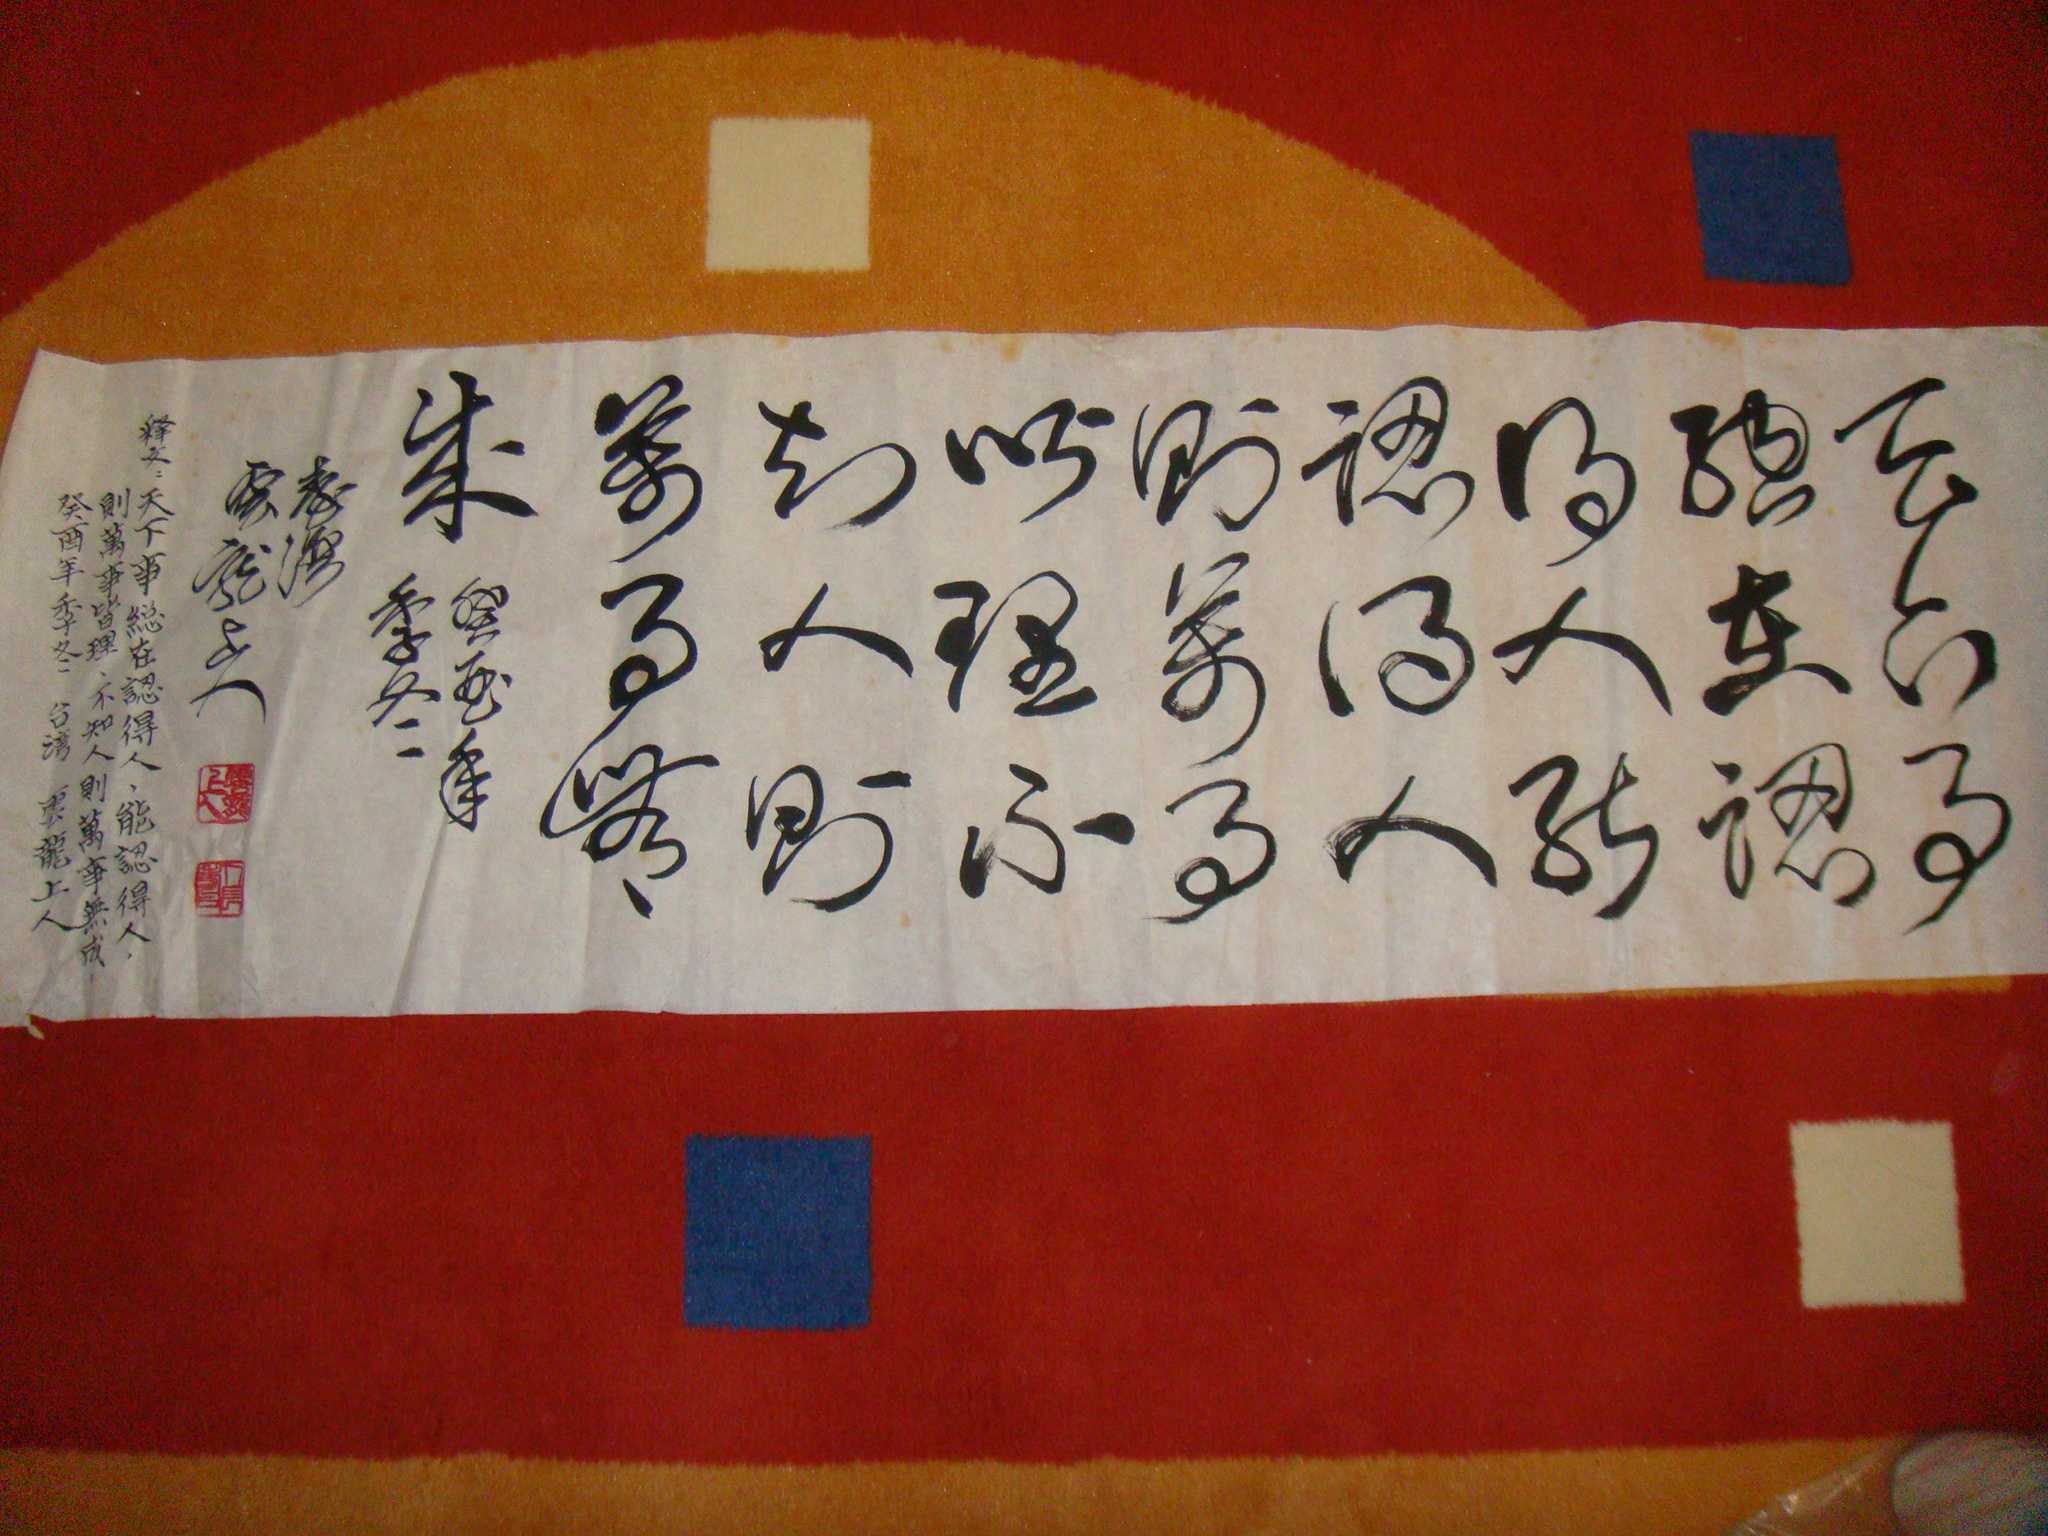 天下事
總在認
得人能
認得人
則萬事
皆理不
知人則
萬事無
成
癸酉年
季冬
臺灣
雲龍上人
雲龍上人
释文：天下事総在認得人、能認得人、
則萬事皆理、不知人則萬事無成、
癸酉年季冬 台湾 雲龍上人